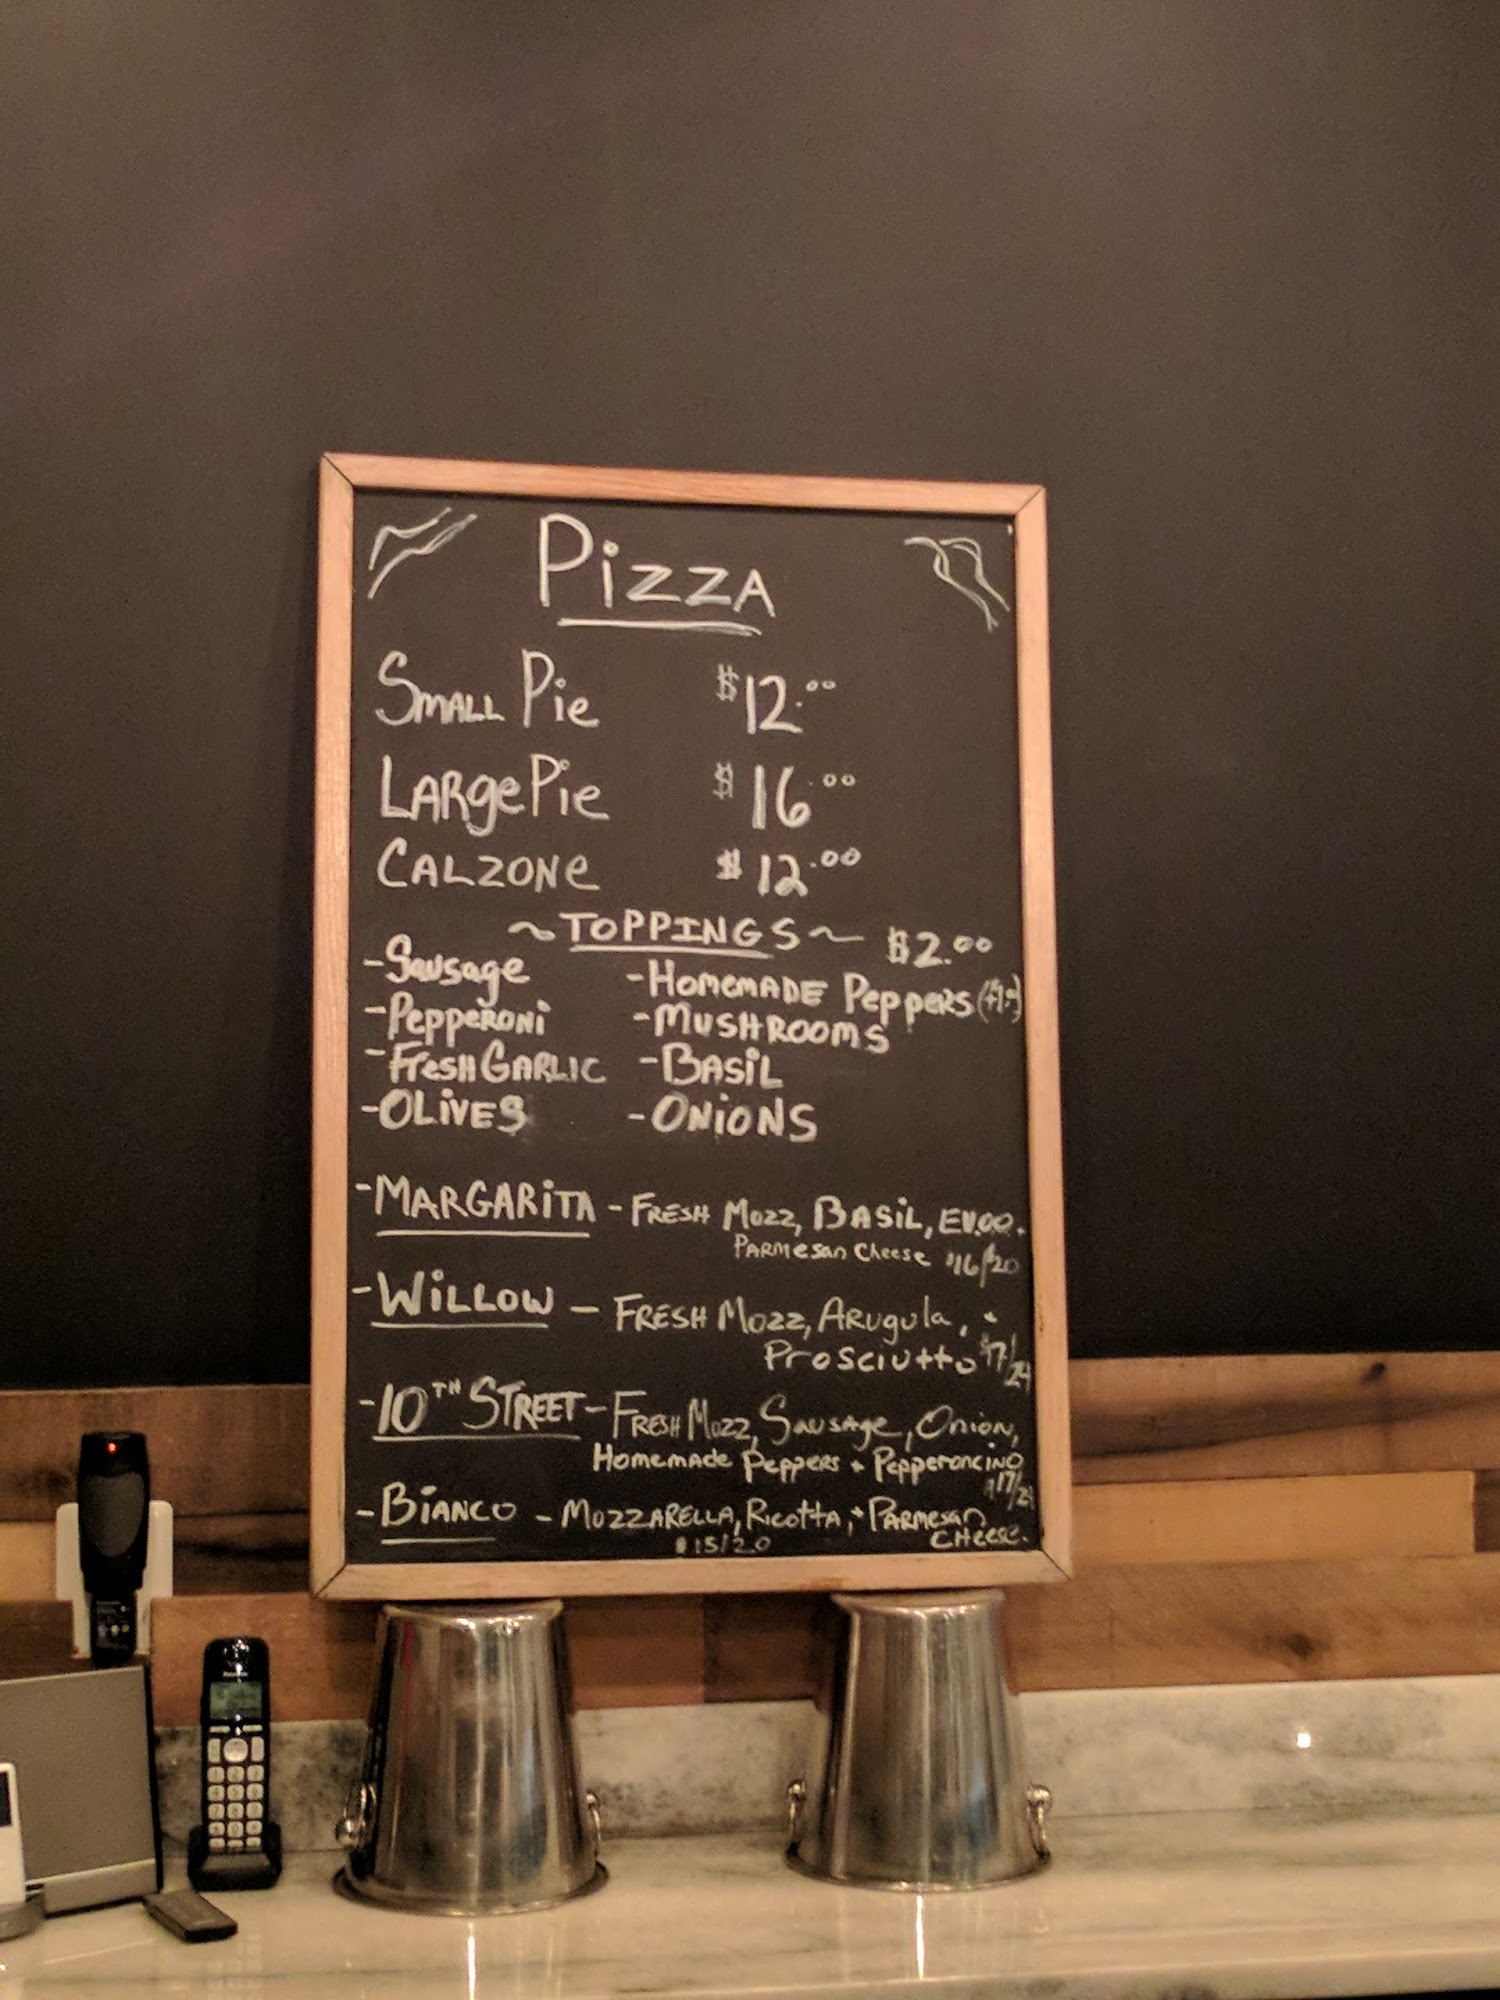 Pizza
Small Pie $12.00
Large Pie $16.00
Calzone $12.00
~TOPPINGS~ $2.00
-Sausage -Homemade Peppers
-Pepperoni -Mushrooms
-Fresh Garlic -Basil
-Olives -Onions
-MARGARITA - FRESH Mozz, BASIL, EVOO.
Parmesan Cheese $16/$20
-WILLOW - FRESH Mozz, Arugula, +
Prosciutto
-10TH STREET - FRESH Mozz, Sausage, Onion,
Homemade Peppers + Pepperoncino
-BIANCO - MOZZARELLA, Ricotta, + PARMESAN
$15/20 CHEESE.
Panasonic